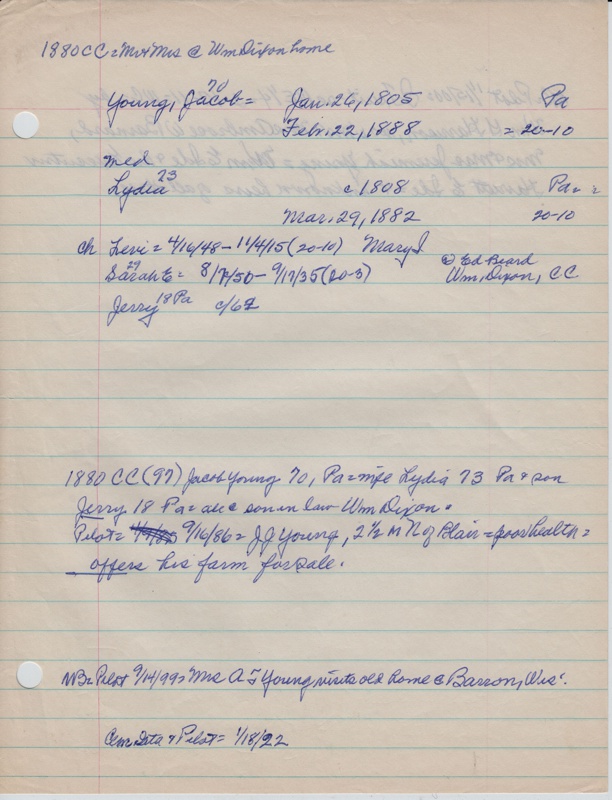 1880 CC = Mr + Mrs @ Wm Dixon home
70
Young, Jacob = Jan. 26, 1805 Pa
Feb. 22, 1888 = 20-10
med
Lydia 73 c 1808 Pa =
Mar. 29, 1882 20-10
ch Levi = 4/16/48 - 11/4/15 (20-10) Mary J
29 @ Ed Beard
Sarah E = 8/7/50 - 9/17/35 (20-3) Wm. Dixon, CC
Jerry 18 Pa c/62
1880 CC (97) Jacob Young 70, Pa = wife Lydia 73 Pa + son
Jerry 18 Pa = all @ son in law Wm Dixon.
Pilot = 9/16/86 = J J Young, 2 1/2 M N of Blair = poor health =
offers his farm for sale.
NB = Pilot 9/14/99 = Mrs A J Young visits old home @ Barron, Wis.
Cem Data + Pilot = 1/18/22